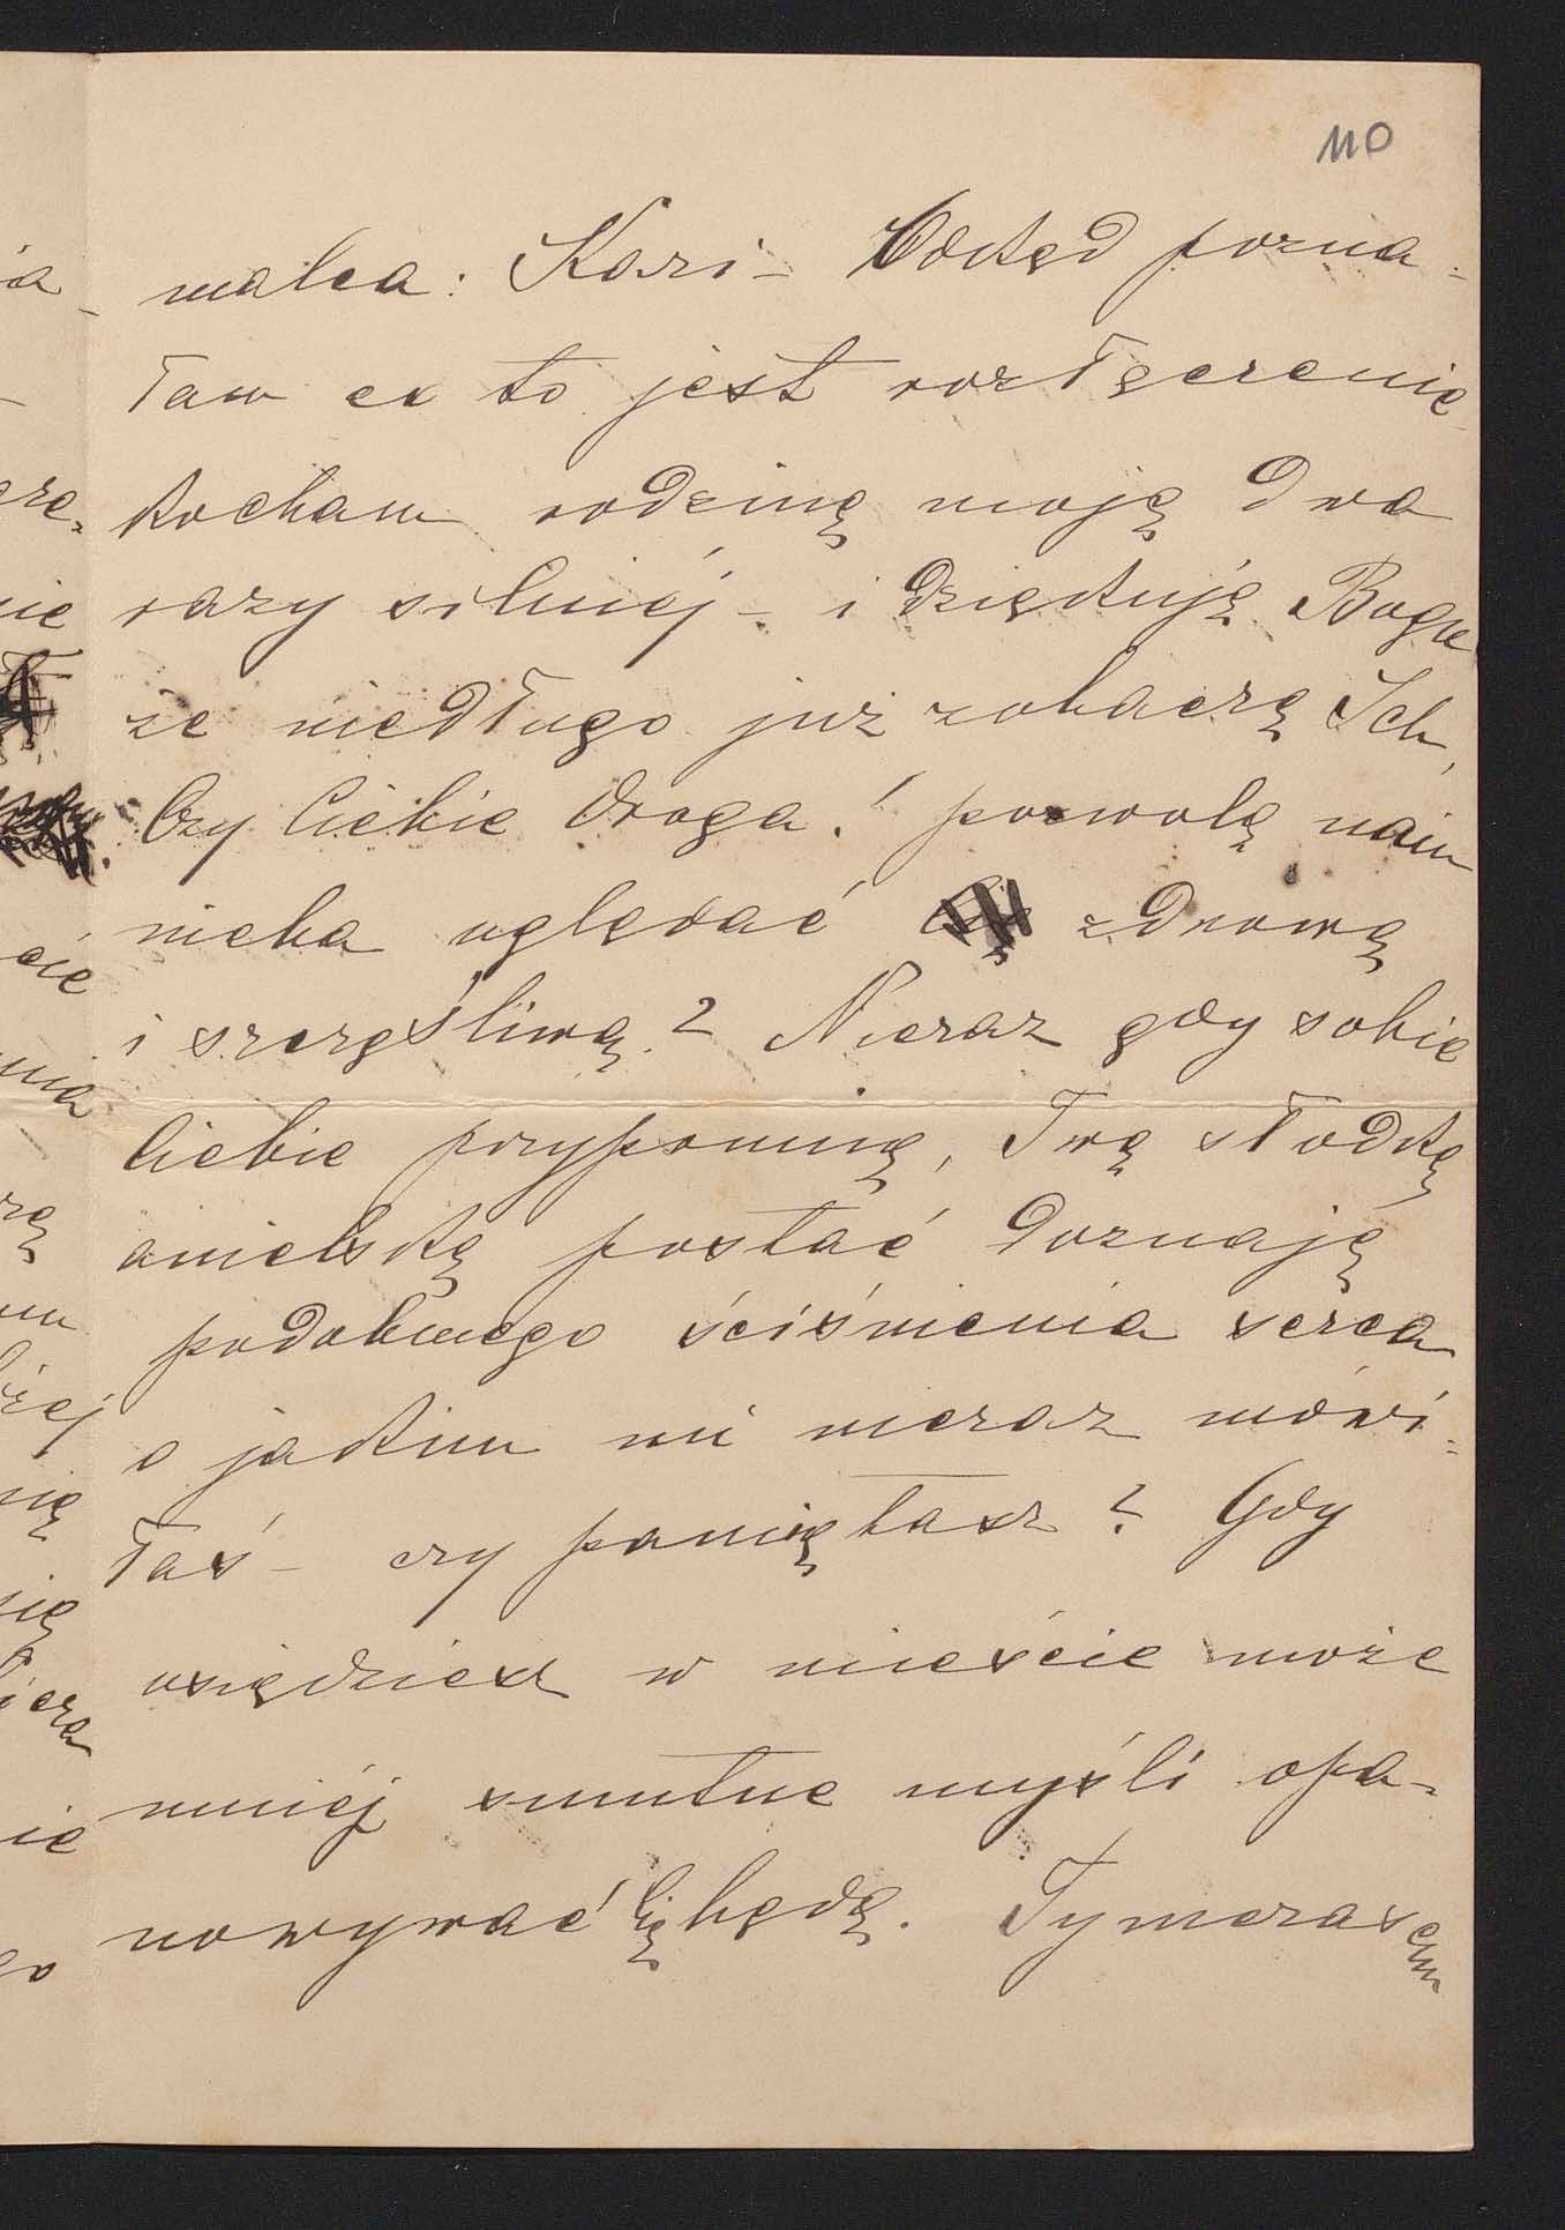 110
malca: Kazi – Odkąd pozna-
łam co to jest rozłączenie
kocham rodzinę moję dwa
razy silniéj – i dziękuję Bogu
że niedługo już zobaczę Ich,
Czy Ciebie droga! pozwolą nam
nieba oglądać zdrową
i szczęśliwą? Nieraz gdy sobie
Ciebie przypomnę, Twą słodką
anielską postać doznaję
podobnego ściśnienia serca
o jakim mi nieraz mówi-
łaś – czy pamiętasz? Gdy
osiędziesz w mieście może
mniéj smutne myśli opa-
nowywać Cię będą. Tymczasem